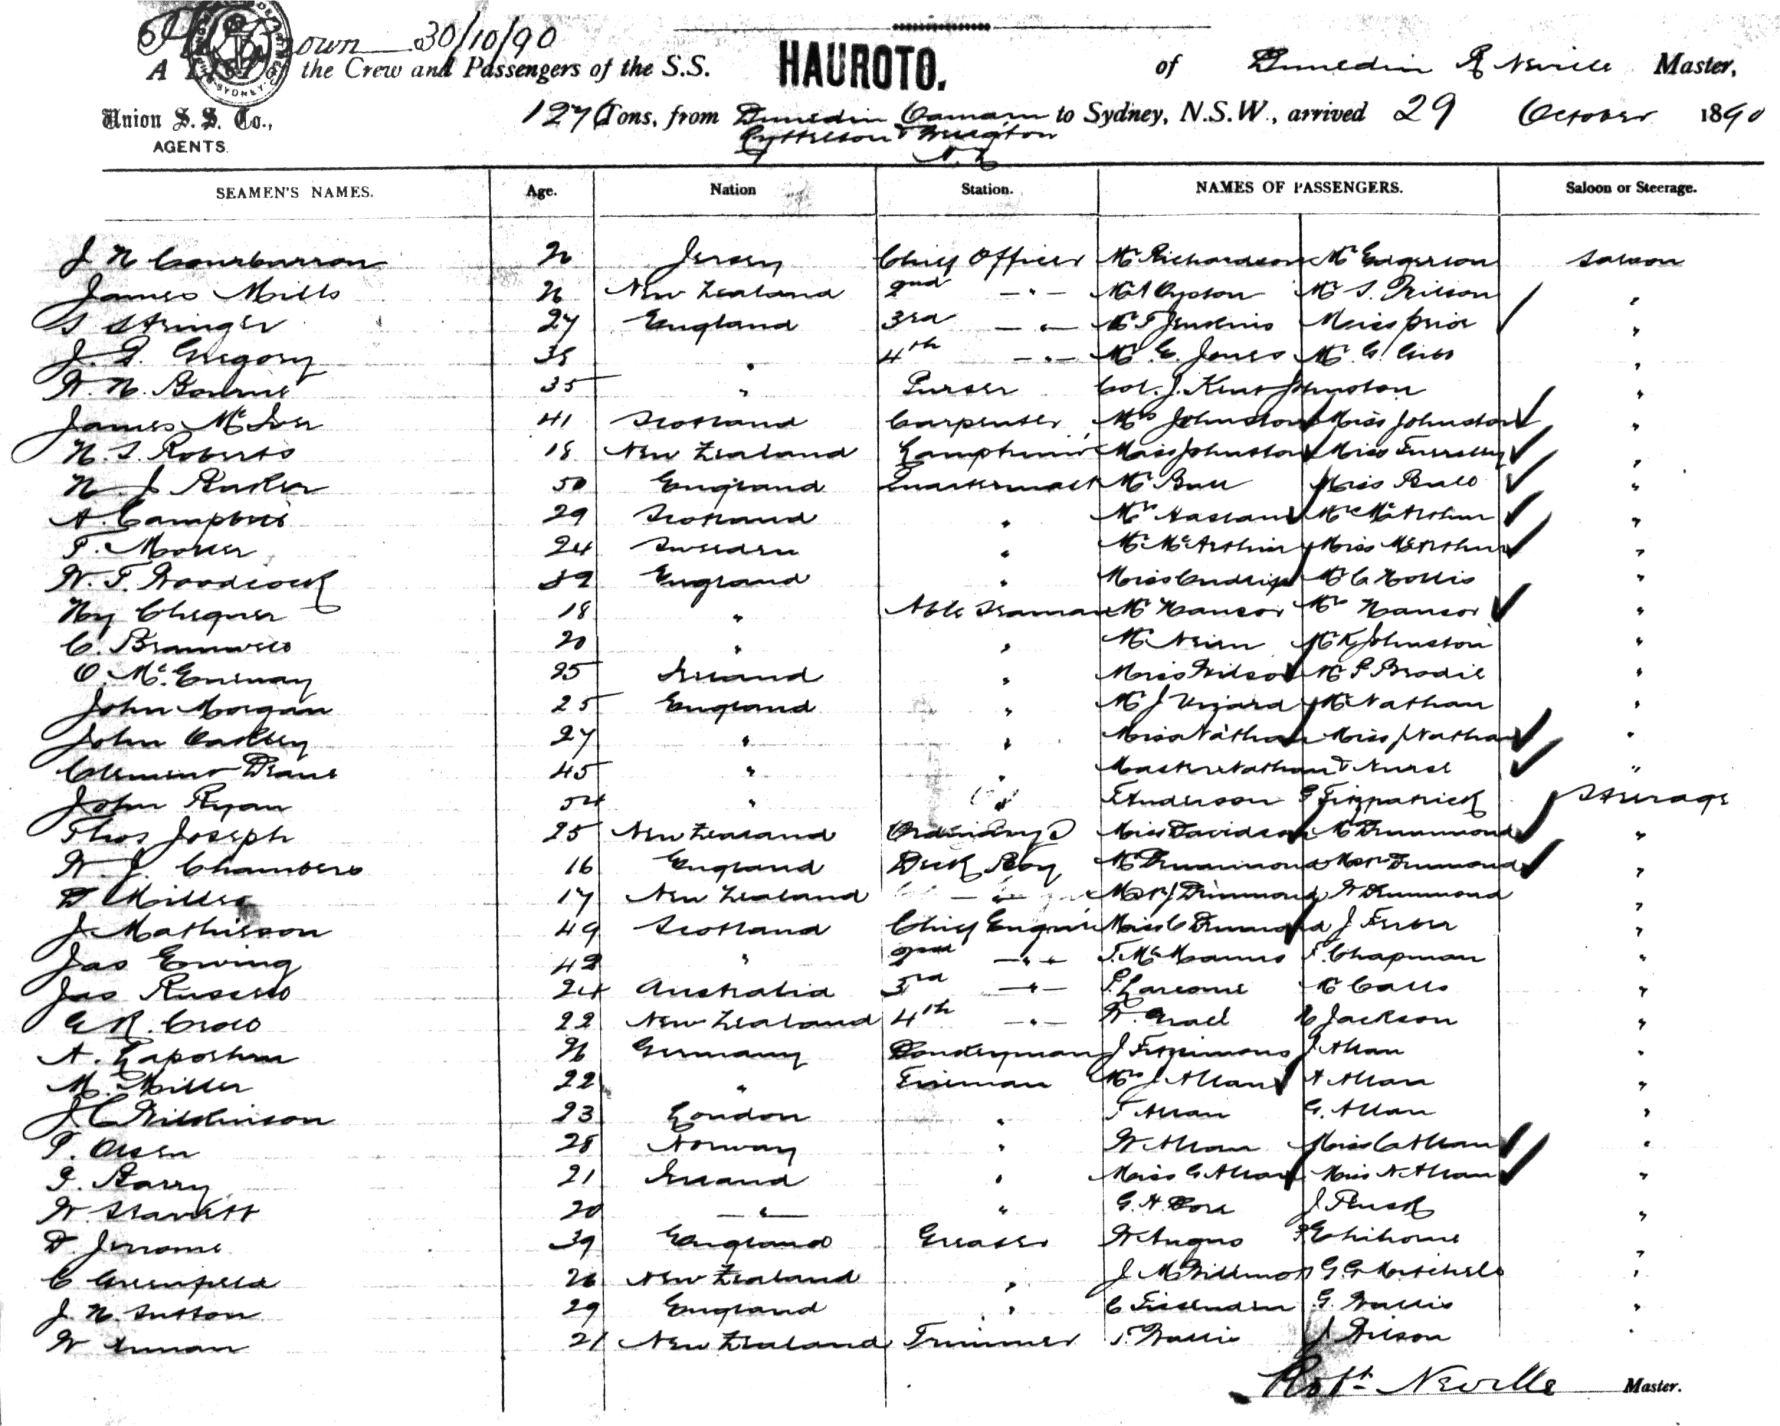 30/10/90
A List of the Crew and Passengers of the S.S. HAUROTO. of Dunedin R Neville Master,
Union S. S. Co., AGENTS.
1276 Tons, from Dunedin Oamaru to Sydney, N.S.W., arrived 29 October 1890
Lyttelton & Wellington
N.Z
SEAMEN'S NAMES. Age. Nation Station. NAMES OF PASSENGERS. Saloon or Steerage.
J N 26 Jersey Chief Officer Mr Richardson Mr Edgerson Saloon
James Mills 26 New Zealand 2nd -"- Mr Mr S. Wilson "
S Stringer 27 England 3rd -"- Mr T Jenkins Miss Prior "
J. G. Gregory 38 " 4th -"- Mr E. Jones Mr G. Gibbs "
W. H. Bourne 35 " Purser Col. J. Kent Johnston "
James McIver 41 Scotland Carpenter Mrs Johnston Miss Johnston "
H. S. Roberts 18 New Zealand Miss Johnston Miss "
H J Baker 50 England Mr Bull Miss Bull "
A. Campbell 29 Scotland " Mrs Mr McArthur "
T. 24 Sweden " Mr McArthur Miss McArthur "
W. T. Woodcock 39 England " Miss Mr C Hollis "
Hy Chequer 18 " Able Seaman Mr Hansor Mrs Hansor "
C. Bramwell 20 " " Mr Mr K Johnston "
O. 25 Ireland " Miss Wilson Mr P Brodie "
John Morgan 25 England " Mr J Vizard Mr Nathan "
John Oakley 27 " " Miss Nathan Miss J Nathan "
Clement Deane 45 " " Master Nathan & Nurse "
John Ryan 54 " " T Anderson G Fitzpatrick Steerage
Thos Joseph 25 New Zealand Ordinary S Miss Davidson Mr Drummond "
W. J. Chambers 16 England Deck Boy Mr Drummond Mstr Drummond "
D Miller 17 New Zealand Mstr J Drummond W Drummond "
J. Mathieson 49 Scotland Chief Engineer Miss C Drummond J "
Jas Ewing 42 " 2nd -"- T. McManus F. Chapman "
Jas Russell 24 Australia 3rd -"- P. Larcome "
G R. Cross 22 New Zealand 4th -"- W. H Jackson "
A. 26 Germany Donkeyman J Fitzsimons J. Allan "
M. Miller 22 " Fireman Mrs J Allan A Allan "
J C 23 London " T Allan G. Allan "
P. Olsen 28 Norway " W Allan Miss C Allan "
J. Barry 21 Ireland " Miss G Allan Miss N Allan "
W. 20 -"- " G. H. J "
D. Jerrome 39 England Greaser W Angus "
C Greenfield 26 New Zealand " J G G Mitchell "
J. H. Sutton 29 England " C G. Wallis "
W 21 New Zealand Trimmer T. Wallis J Wilson "
Robt Neville Master.